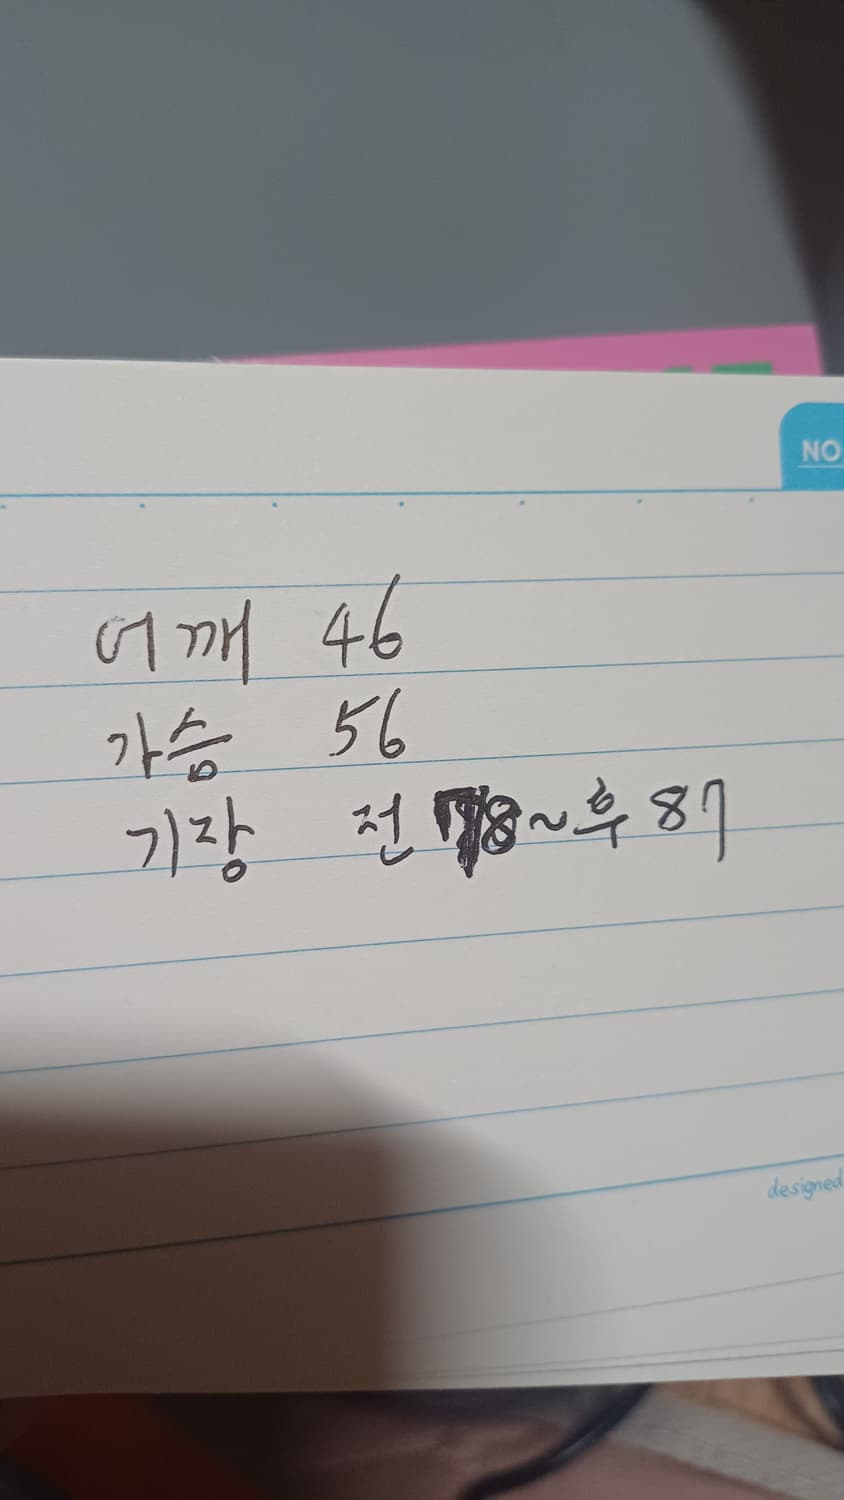 NO
어깨 46
가슴 56
기장 전 78~후 87
designed